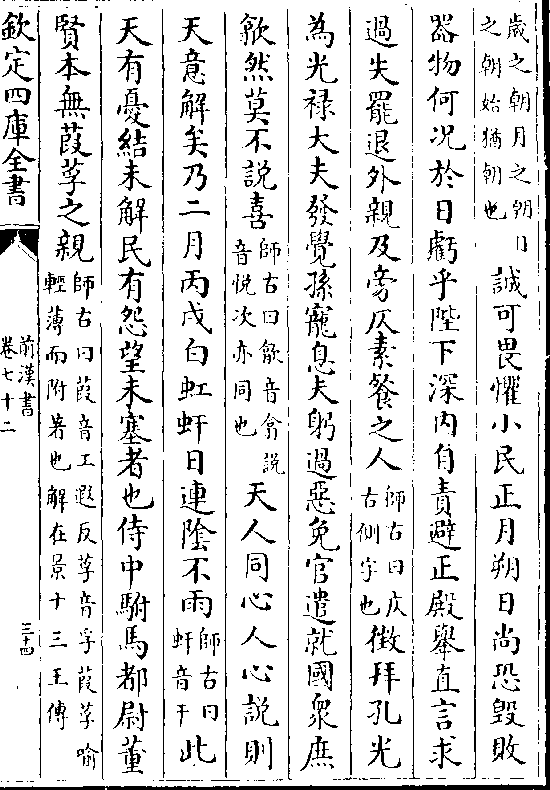 歲之朝月之朝日
之朝始猶朝也
誠可畏懼小民正月朔日尚恐毀敗
器物何况於日虧乎陛下深内自責避正殿舉直言求
過失罷退外親及旁仄素餐之人
師古曰仄
古側字也
徵拜孔光
為光禄大夫發覺孫寵息夫躬過惡免官遣就國衆庶
歙然莫不說喜
師古曰歙音翕說
音悦次亦同也
天人同心人心說則
天意解矣乃二月丙戌白虹虷日連陰不雨
師古曰
虷音干
此
天有憂結未解民有怨望未塞者也侍中駙馬都尉董
賢本無葭莩之親
師古曰葭音工遐反莩音孚葭莩喻
輕薄而附著也解在景十三王傳
欽定四庫全書
前漢書
卷七十二
三十四